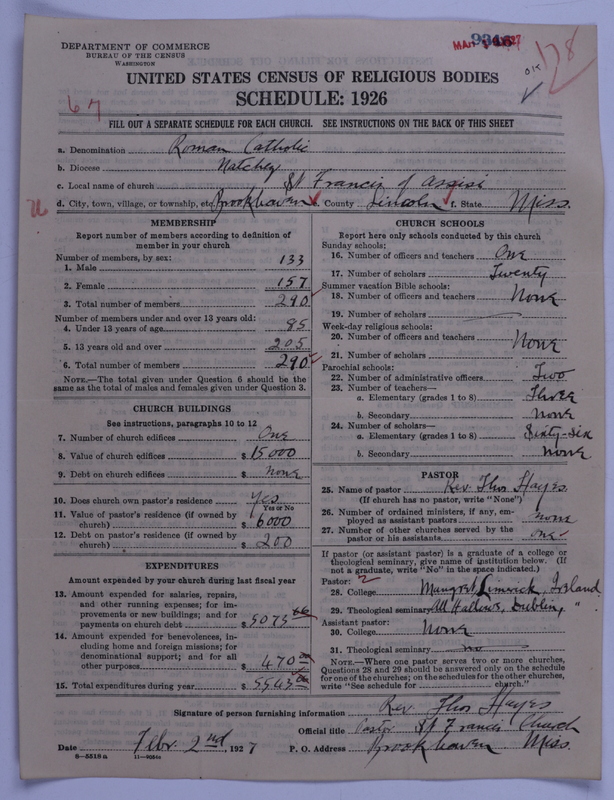 DEPARTMENT OF COMMERCE
BUREAU OF THE CENSUS
WASHINGTON
UNITED STATES CENSUS OF RELIGIOUS BODIES
SCHEDULE: 1926
128
OK
67
FILL OUT A SEPARATE SCHEDULE FOR EACH CHURCH. SEE INSTRUCTIONS ON THE BACK OF THIS SHEET
a. Denomination Roman Catholic
b. Diocese Natchez
c. Local name of church St Francis of Assisi
d. City, town, village, or township, etc. Brookhaven e. County Lincoln f. State Miss.
MEMBERSHIP
Report number of members according to definition of
member in your church
Number of members, by sex:
1. Male 133
2. Female 157
3. Total number of members 290
Number of members under and over 13 years old:
4. Under 13 years of age 85
5. 13 years old and over 205
6. Total number of members 290
NOTE.—The total given under Question 6 should be
same as the total of males and females given under Question 3.
CHURCH BUILDINGS
See instructions, paragraphs 10 to 12
7. Number of church edifices One
8. Value of church edifices $ 15000
9. Debt on church edifices $ None
10. Does church own pastor's residence Yes
Yes or No
11. Value of pastor's residence (if owned by
church) $ 6000
12. Debt on pastor's residence (if owned by
church) $ 200
EXPENDITURES
Amount expended by your church during last fiscal year
13. Amount expended for salaries, repairs,
and other running expenses; for im-
provements or new buildings; and for
payments on church debt $ 5075
14. Amount expended for benevolences, in-
cluding home and foreign missions; for
denominational support; and for all
other purposes $ 470
15. Total expenditures during year $ 5545
CHURCH SCHOOLS
Report here only schools conducted by this church
Sunday schools:
16. Number of officers and teachers One
17. Number of scholars Twenty
Summer vacation Bible schools:
18. Number of officers and teachers None
19. Number of scholars
Week-day religious schools:
20. Number of officers and teachers None
21. Number of scholars
Parochial schools:
22. Number of administrative officers Two
23. Number of teachers—
a. Elementary (grades 1 to 8) Three
b. Secondary None
24. Number of scholars—
a. Elementary (grades 1 to 8) Sixty-Six
b. Secondary None
PASTOR
25. Name of pastor Rev. Thos Hayes.
(If church has no pastor, write "None")
26. Number of ordained ministers, if any, em-
ployed as assistant pastors none
27. Number of other churches served by the
pastor or his assistants one
If pastor (or assistant pastor) is a graduate of a college or
theological seminary, give name of institution below. (If
not a graduate, write "No" in the space indicated.)
Pastor: 2
28. College Mungret Limerick, Ireland
29. Theological seminary All Hallows, Dublin, "
Assistant pastor:
30. College None
31. Theological seminary no
NOTE.—Where one pastor serves two or more churches,
Questions 28 and 29 should be answered only on the schedule
for one of the churches; on the schedules for the other churches,
write "See schedule for church."
Signature of person furnishing information Rev. Thos Hayes
Official title Pastor St Francis Church
Date Febr. 2nd, 1927 P. O. Address Brookhaven Miss.
8—5518a 11—9064a